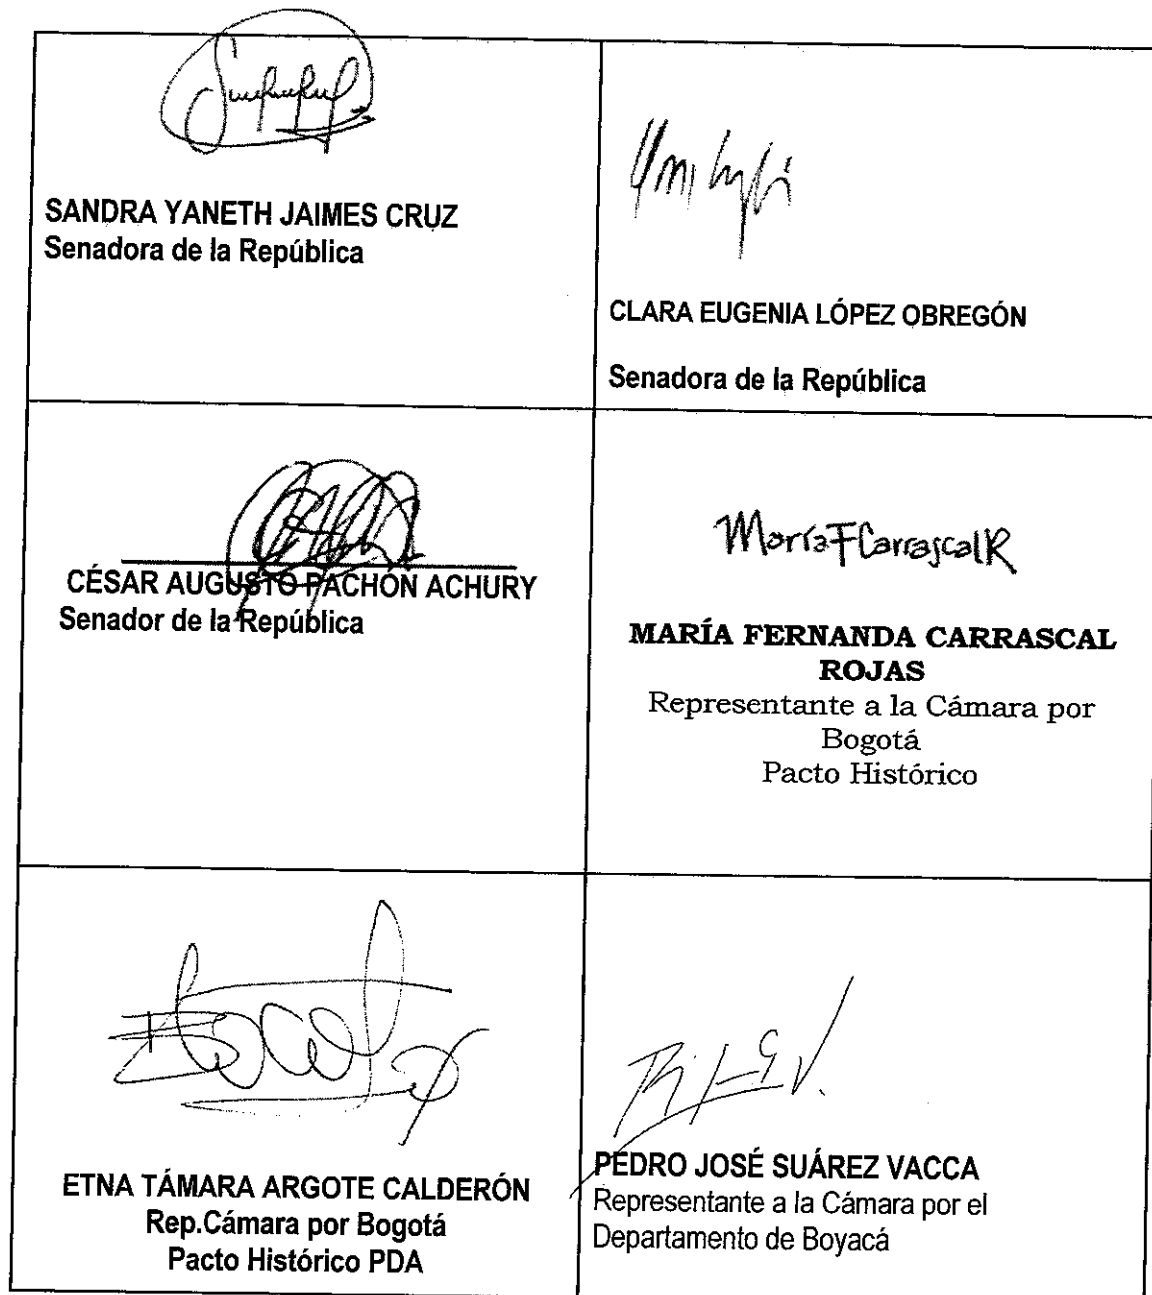 SANDRA YANETH JAIMES CRUZ
Senadora de la República
CLARA EUGENIA LÓPEZ OBREGÓN
Senadora de la República
CÉSAR AUGUSTO PACHÓN ACHURY
Senador de la República
MaríaFCarrascalR
MARÍA FERNANDA CARRASCAL
ROJAS
Representante a la Cámara por
Bogotá
Pacto Histórico
ETNA TÁMARA ARGOTE CALDERÓN
Rep.Cámara por Bogotá
Pacto Histórico PDA
PEDRO JOSÉ SUÁREZ VACCA
Representante a la Cámara por el
Departamento de Boyacá